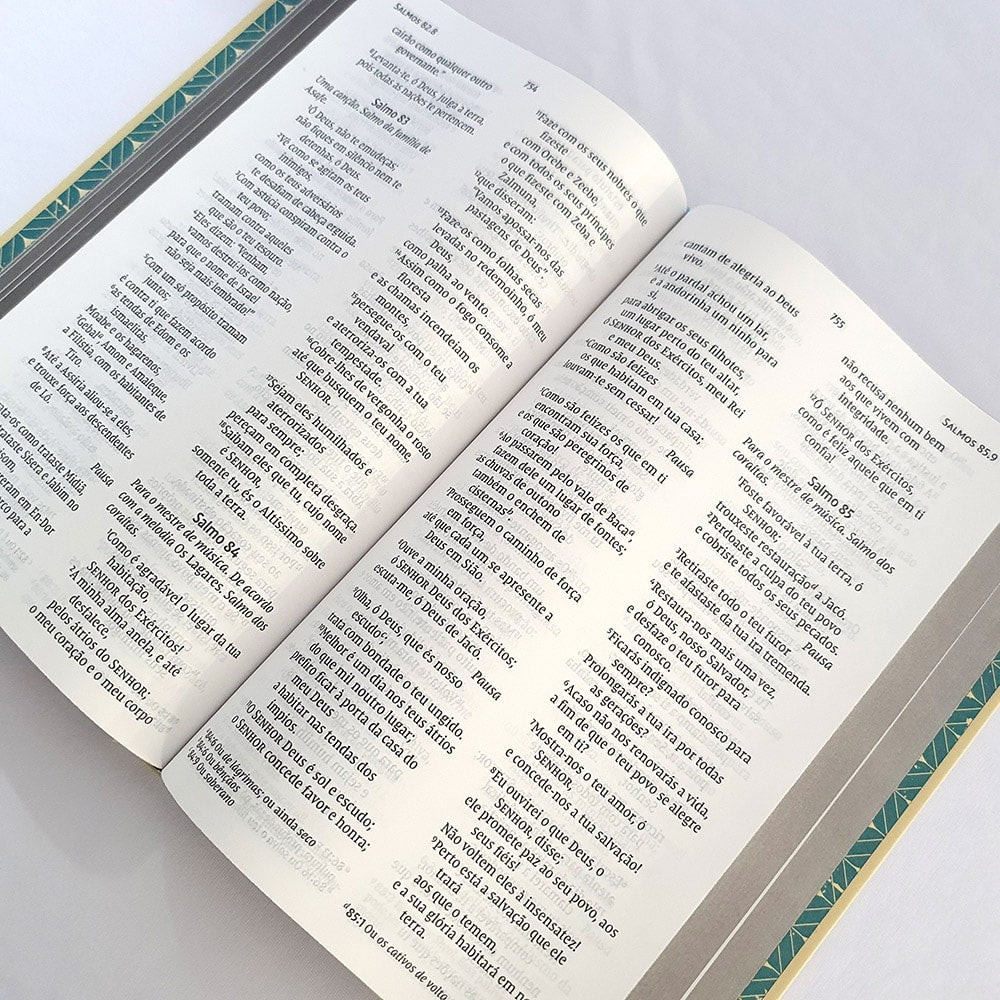 SALMOS 82.8
754
cairão como qualquer outro
governante."
⁸Levanta-te, ó Deus, julga a terra,
pois todas as nações te pertencem.
Salmo 83
Uma canção. Salmo da família de
Asafe.
¹Ó Deus, não te emudeças;
não fiques em silêncio nem te
detenhas, ó Deus.
²Vê como se agitam os teus
inimigos,
como os teus adversários
te desafiam de cabeça erguida.
³Com astúcia conspiram contra o
teu povo;
tramam contra aqueles
que são o teu tesouro.
⁴Eles dizem: "Venham,
vamos destruí-los como nação,
para que o nome de Israel
não seja mais lembrado!"
⁵Com um só propósito tramam
juntos;
é contra ti que fazem acordo
⁶as tendas de Edom e os
ismaelitas,
Moabe e os hagarenos,
⁷Gebal, Amom e Amaleque,
a Filístia, com os habitantes de
Tiro.
⁸Até a Assíria aliou-se a eles,
e trouxe força aos descendentes
de Ló.
Pausa
como trataste Midiã,
trataste Sísera e Jabim no
Quisom,
em En-Dor
para o
⁷Faze com os seus nobres o que
fizeste
com Orebe e Zeebe,
e com todos os seus príncipes
o que fizeste com Zeba e
Zalmuna,
que disseram:
"Vamos apossar-nos das
pastagens de Deus".
Faze-os como folhas secas
levadas no redemoinho, ó meu
Deus,
como palha ao vento.
¹⁴Assim como o fogo consome a
floresta
e as chamas incendeiam os
montes,
persegue-os com o teu
vendaval
e aterroriza-os com a tua
tempestade.
¹⁶Cobre-lhes de vergonha o rosto
até que busquem o teu nome,
SENHOR.
¹⁷Sejam eles humilhados e
aterrorizados
para sempre;
pereçam em completa desgraça.
¹⁸Saibam eles que tu, cujo nome
é SENHOR,
somente tu, és o Altíssimo sobre
toda a terra.
Salmo 84
Para o mestre de música. De acordo
com a melodia Os Lagares. Salmo dos
coraítas.
¹Como é agradável o lugar da tua
habitação,
SENHOR dos Exércitos!
²A minha alma anela, e até
desfalece,
pelos átrios do SENHOR;
o meu coração e o meu corpo
755
SALMOS 85.9
cantam de alegria ao Deus
vivo.
³Até o pardal achou um lar,
e a andorinha um ninho para
si,
para abrigar os seus filhotes,
um lugar perto do teu altar,
ó SENHOR dos Exércitos, meu Rei
e meu Deus.
⁴Como são felizes
os que habitam em tua casa;
louvam-te sem cessar!
Pausa
⁵Como são felizes os que em ti
encontram sua força,
e os que são peregrinos de
coração!
⁶Ao passarem pelo vale de Bacaᵃ,
fazem dele um lugar de fontes;
as chuvas de outono
também o enchem de
cisternasᵇ.
⁷Prosseguem o caminho de força
em força,
até que cada um se apresente a
Deus em Sião.
⁸Ouve a minha oração,
ó SENHOR Deus dos Exércitos;
escuta-me, ó Deus de Jacó.
Pausa
⁹Olha, ó Deus, que és nosso
escudoᶜ;
trata com bondade o teu ungido.
¹⁰Melhor é um dia nos teus átrios
do que mil noutro lugar;
prefiro ficar à porta da casa do
meu Deus
a habitar nas tendas dos
ímpios.
¹¹O SENHOR Deus é sol e escudo;
o SENHOR concede favor e honra;
ᵃ84:6 Ou de lágrimas; ou ainda seco
ᵇ84:6 Ou bênçãos
ᶜ84:9 Ou soberano
não recusa nenhum bem
aos que vivem com
integridade.
¹²Ó SENHOR dos Exércitos,
como é feliz aquele que em ti
confia!
Salmo 85
Para o mestre de música. Salmo dos
coraítas.
¹Foste favorável à tua terra, ó
SENHOR;
trouxeste restauraçãoᵈ a Jacó.
²Perdoaste a culpa do teu povo
e cobriste todos os seus pecados.
Pausa
³Retiraste todo o teu furor
e te afastaste da tua ira tremenda.
⁴Restaura-nos mais uma vez,
ó Deus, nosso Salvador,
e desfaze o teu furor para
conosco.
⁵Ficarás indignado conosco para
sempre?
Prolongarás a tua ira por todas
as gerações?
⁶Acaso não nos renovarás a vida,
a fim de que o teu povo se alegre
em ti?
⁷Mostra-nos o teu amor, ó
SENHOR,
e concede-nos a tua salvação!
⁸Eu ouvirei o que Deus, o
SENHOR, disse;
ele promete paz ao seu povo, aos
seus fiéis!
Não voltem eles à insensatez!
⁹Perto está a salvação que ele
trará
aos que o temem,
e a sua glória habitará em
terra.
ᵈ85:1 Ou os cativos de volta